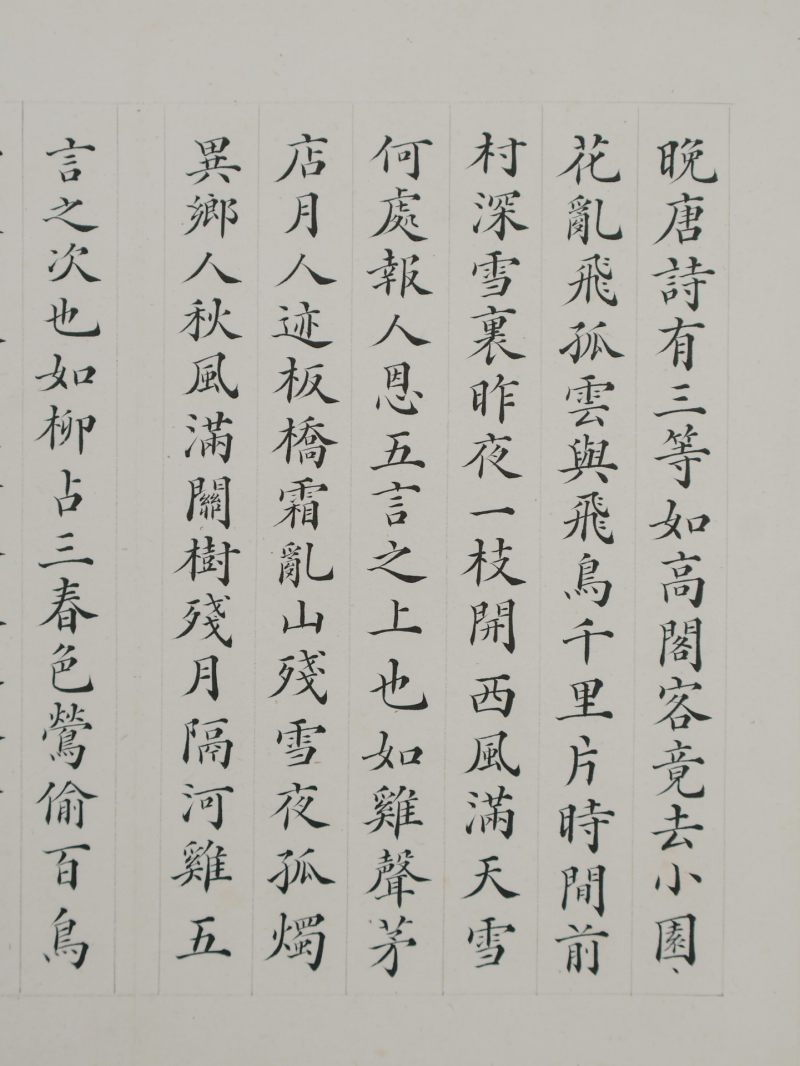 晚唐詩有三等如高閣客竟去小園
花亂飛孤雲與飛鳥千里片時間前
村深雪裏昨夜一枝開西風滿天雪
何處報人恩五言之上也如雞聲茅
店月人迹板橋霜亂山殘雪夜孤燭
異鄉人秋風滿關樹殘月隔河雞五
言之次也如柳占三春色鶯偷百鳥